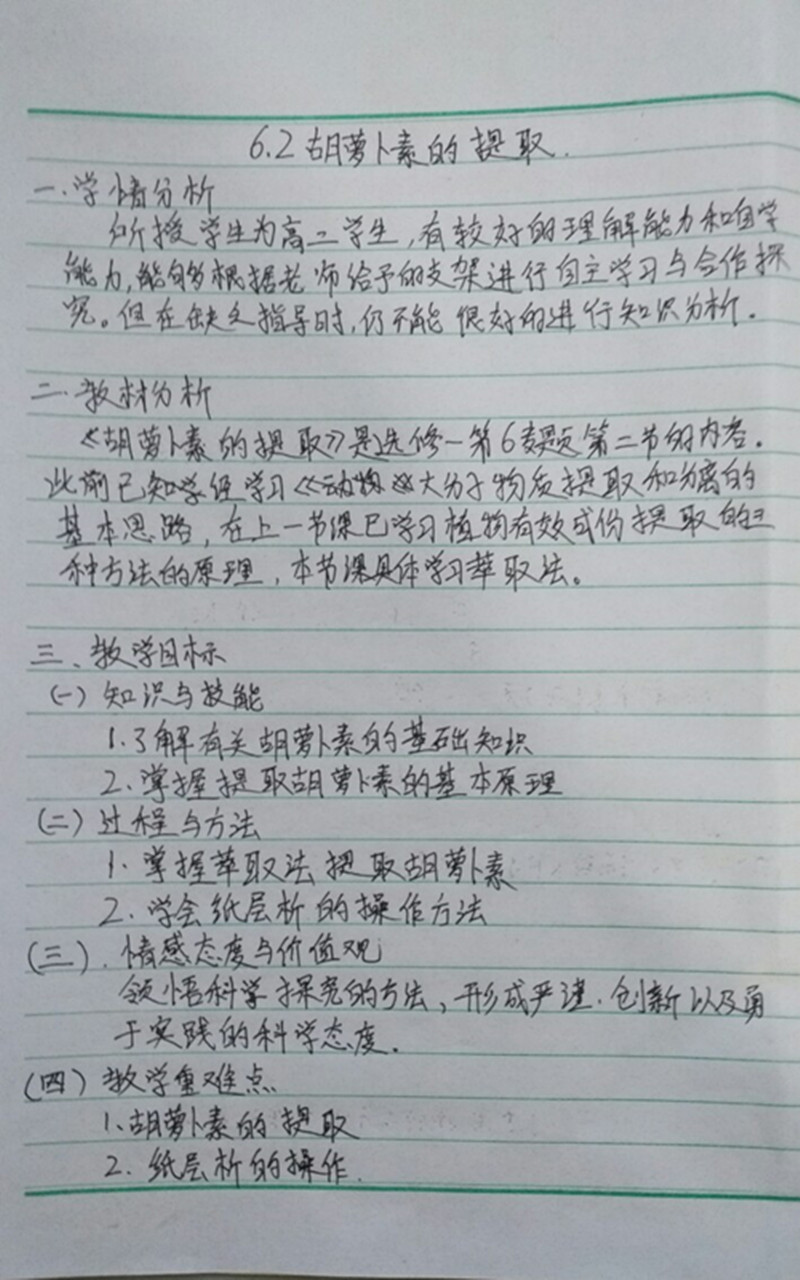 6.2 胡萝卜素的提取.
一.学情分析
所授学生为高二学生,有较好的理解能力和自学
能力,能够根据老师给予的支架进行自主学习与合作探
究。但在缺乏指导时,仍不能很好的进行知识分析.
二.教材分析
《胡萝卜素的提取》是选修一第6专题第二节的内容.
此前已知学但学习《动物 大分子物质提取和分离的
基本思路,在上一节课已学习植物有效成份提取的三
种方法的原理,本节课具体学习萃取法。
三、教学目标
(一)知识与技能
1.了解有关胡萝卜素的基础知识
2.掌握提取胡萝卜素的基本原理
(二)过程与方法
1.掌握萃取法提取胡萝卜素
2.学会纸层析的操作方法
(三).情感态度与价值观
领悟科学探究的方法,形成严谨.创新以及勇
于实践的科学态度.
(四)教学重难点
1.胡萝卜素的提取
2.纸层析的操作.